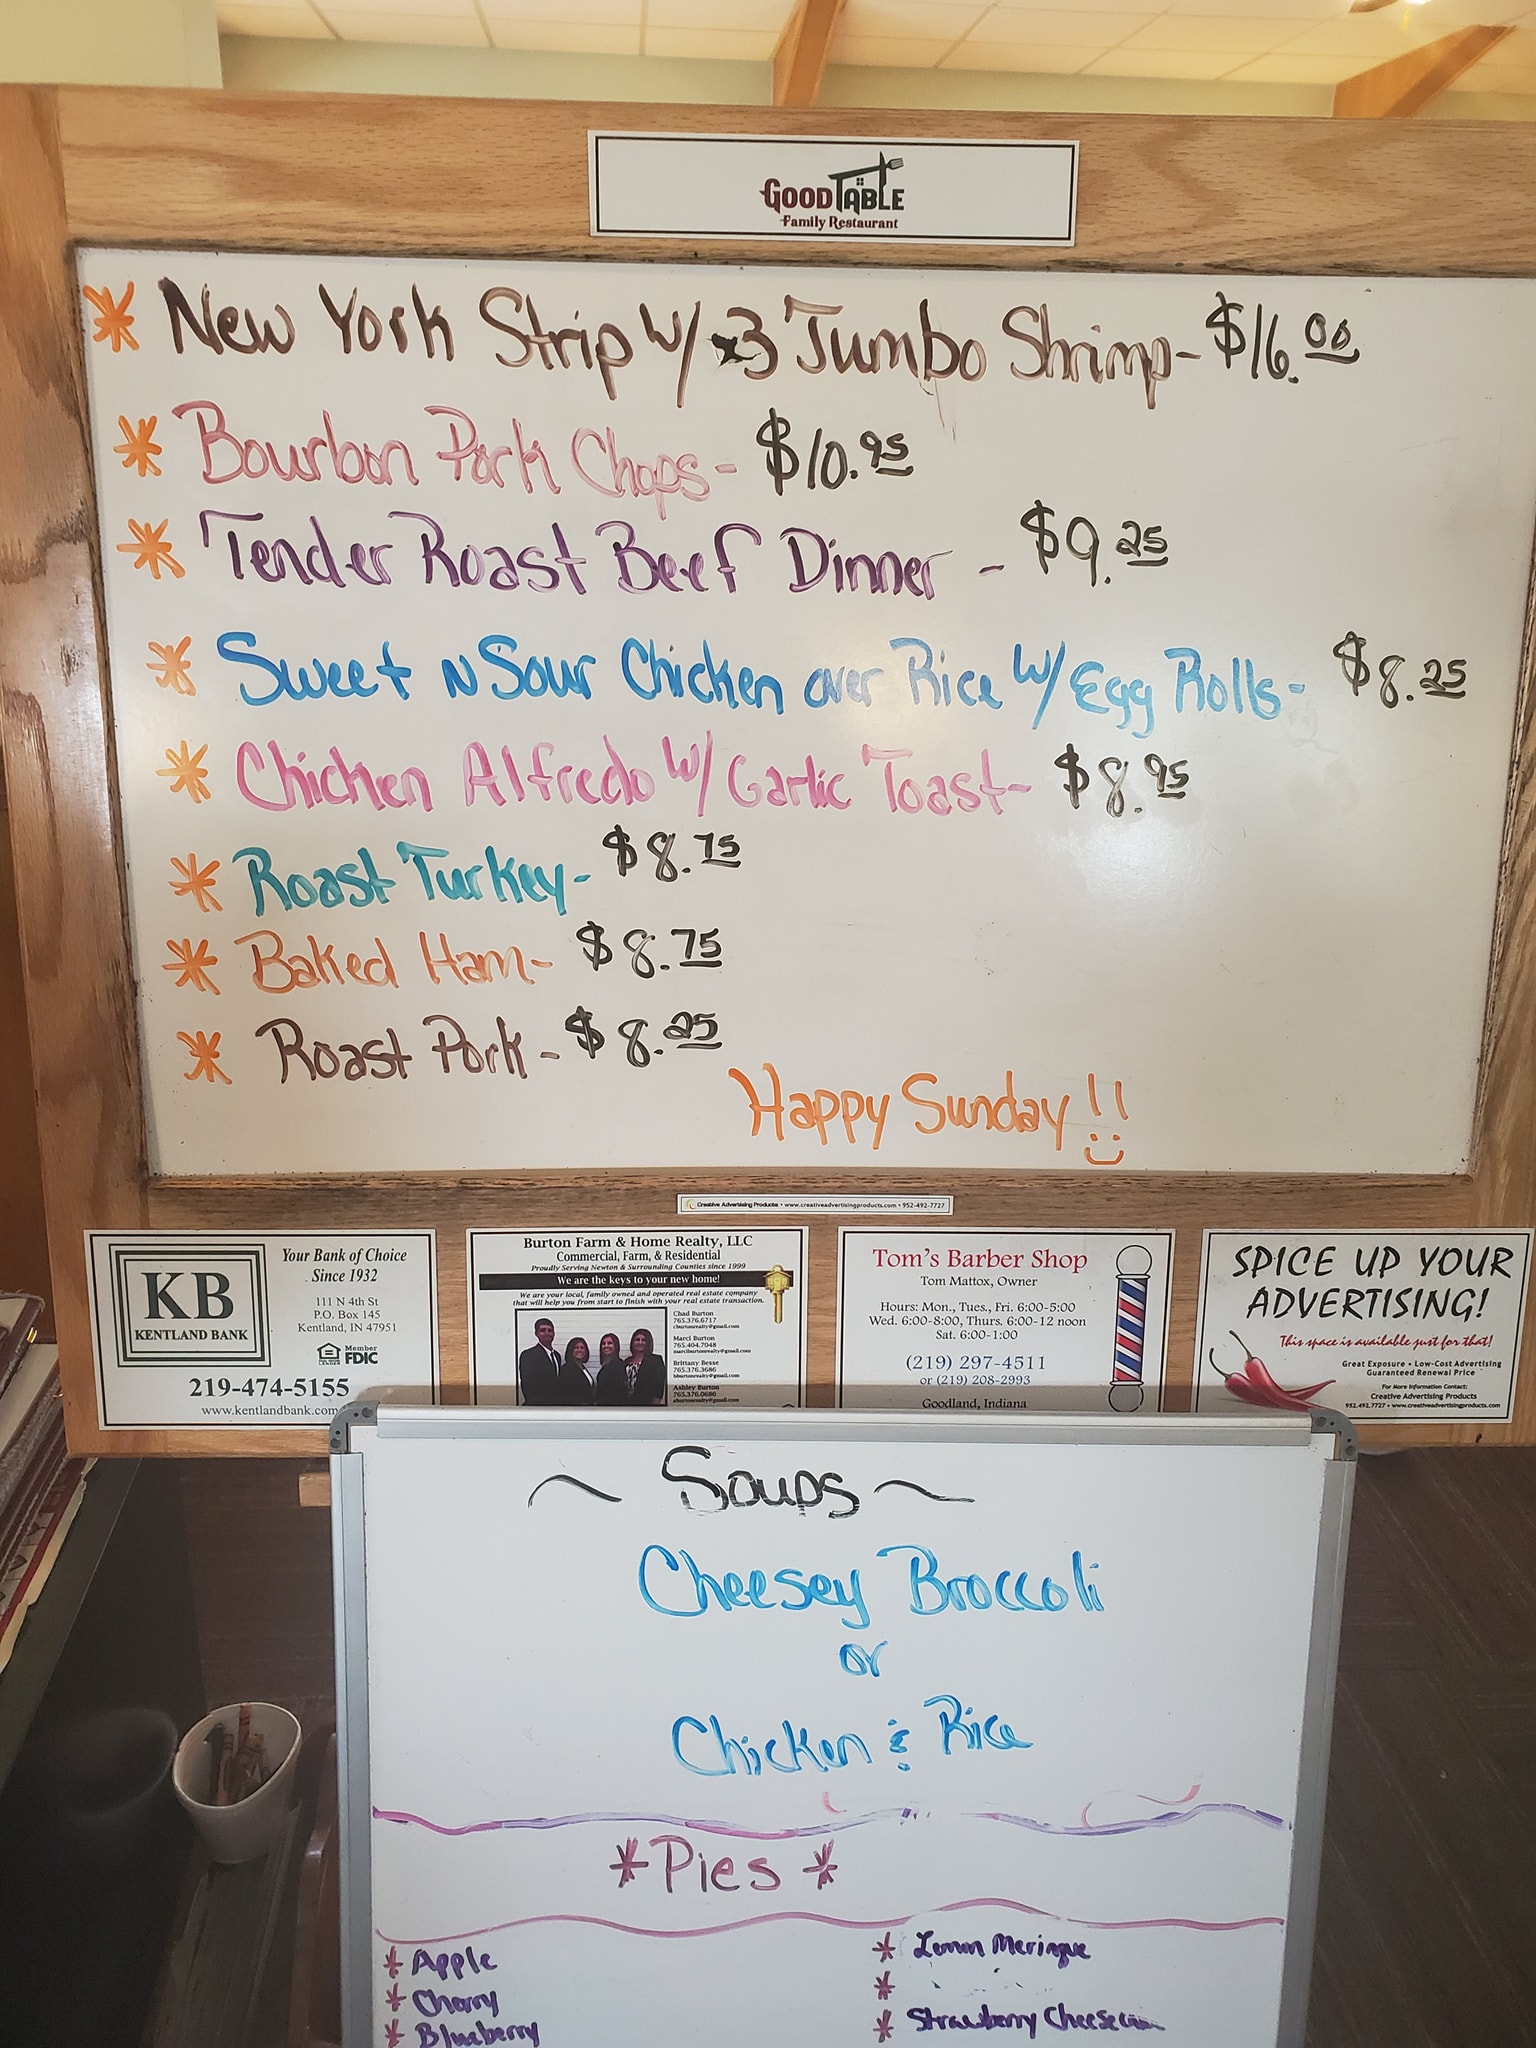 GOOD TABLE
Family Restaurant
* New York Strip w/ x3 Jumbo Shrimp- $16.00
* Bourbon Pork Chops- $10.95
* Tender Roast Beef Dinner - $9.25
* Sweet N Sour Chicken over Rice w/ Egg Rolls- $8.25
* Chicken Alfredo w/ Garlic Toast- $8.95
* Roast Turkey- $8.75
* Baked Ham- $8.75
* Roast Pork- $8.25
Happy Sunday!!
Creative Advertising Products • www.creativeadvertisingproducts.com • 952-492-7727
KB
KENTLAND BANK
Your Bank of Choice
Since 1932
111 N 4th St
P.O. Box 145
Kentland, IN 47951
Member
FDIC
219-474-5155
www.kentlandbank.com
Burton Farm & Home Realty, LLC
Commercial, Farm, & Residential
Proudly Serving Newton & Surrounding Counties since 1999
We are the keys to your new home!
We are your local, family owned and operated real estate company
that will help you from start to finish with your real estate transaction.
Chad Burton
765.376.6717
cburtonrealty@gmail.com
Marci Burton
765.404.7048
marciburtonrealty@gmail.com
Brittany Besse
765.376.3686
bburtonrealty@gmail.com
Ashley Burton
765.376.0686
aburtonrealty@gmail.com
Tom's Barber Shop
Tom Mattox, Owner
Hours: Mon., Tues., Fri. 6:00-5:00
Wed. 6:00-8:00, Thurs. 6:00-12 noon
Sat. 6:00-1:00
(219) 297-4511
or (219) 208-2993
Goodland, Indiana
SPICE UP YOUR
ADVERTISING!
This space is available just for that!
Great Exposure • Low-Cost Advertising
Guaranteed Renewal Price
For More Information Contact:
Creative Advertising Products
952.492.7727 • www.creativeadvertisingproducts.com
~ Soups ~
Cheesey Broccoli
or
Chicken & Rice
* Pies *
* Apple
* Cherry
* Blueberry
* Lemon Meringue
*
* Strawberry